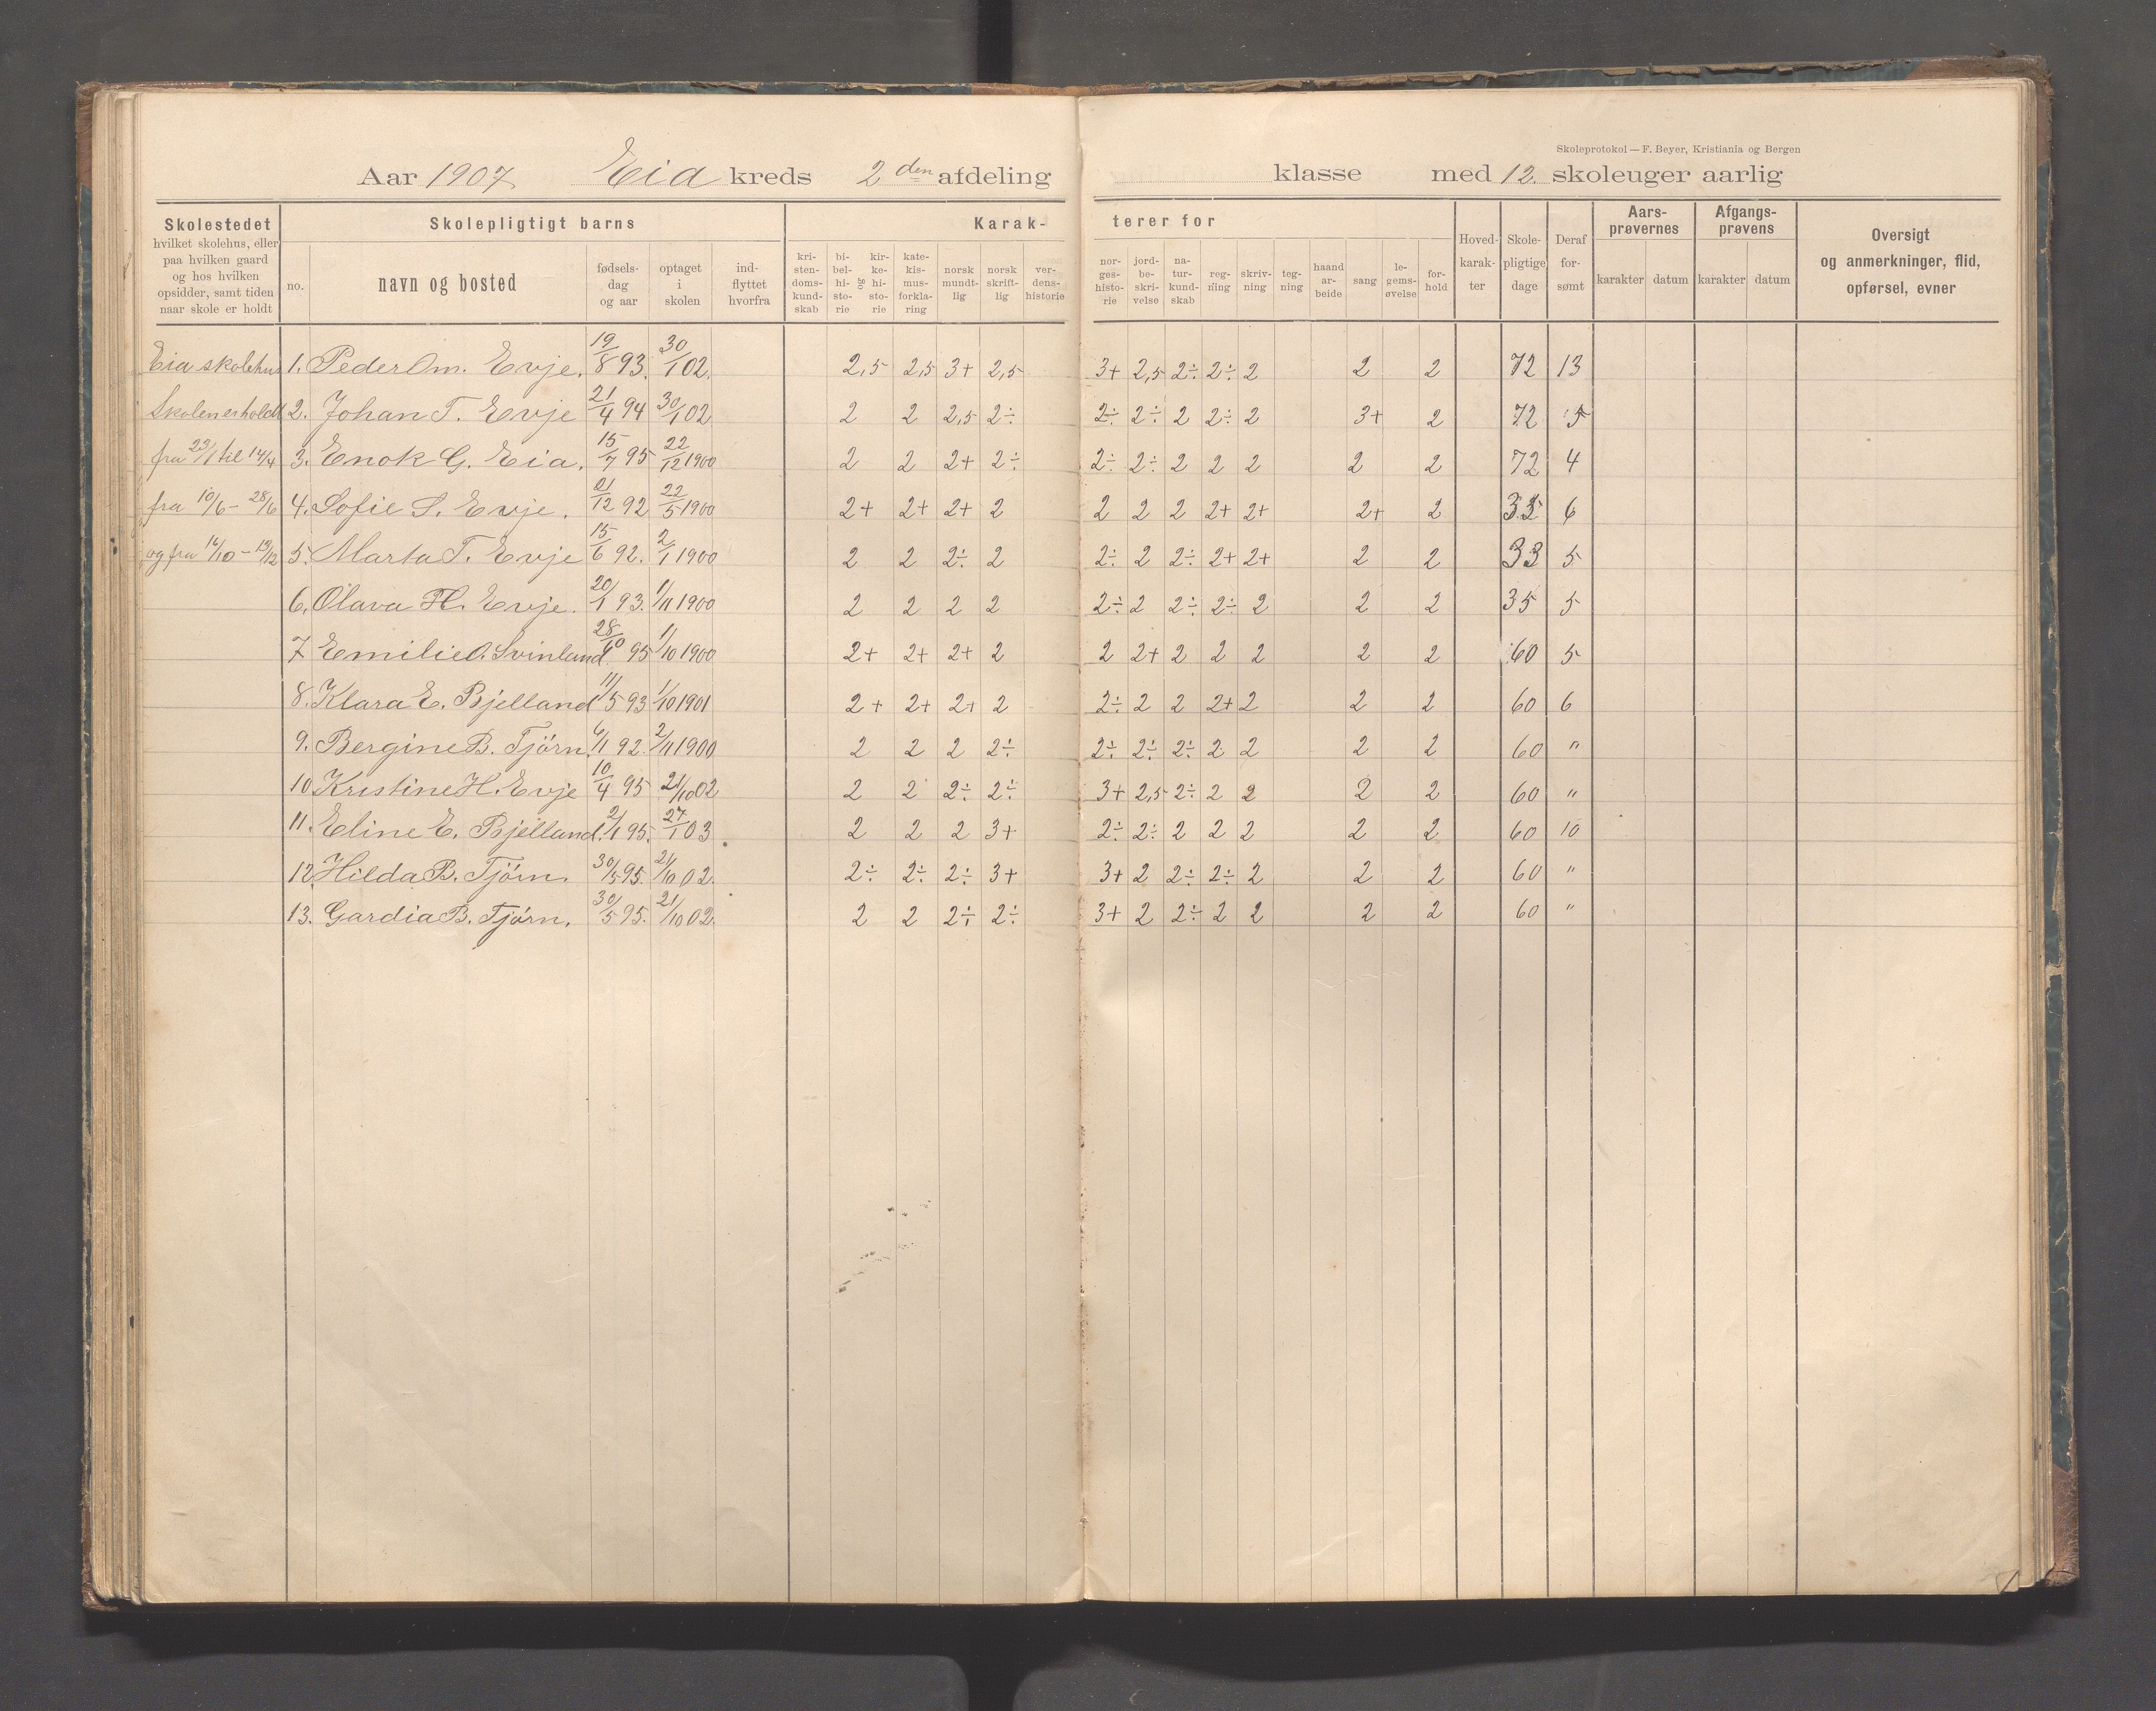 Skoleprotokol — F. Beyer, Kristiania og Bergen
Aar 1907 Eia kreds 2den afdeling klasse med 12. skoleuger aarlig
Skolestedet hvilket skolehus, eller paa hvilken gaard og hos hvilken opsidder, samt tiden naar skole er holdt
Skolepligtigt barns
no. navn og bosted fødsels-dag og aar optaget i skolen ind-flyttet hvorfra
Karak-terer for
kri-sten-doms-kund-skab bi-bel-hi-sto-rie og kir-ke-hi-sto-rie kate-kis-mus-forkla-ring norsk mundt-lig norsk skrift-lig ver-dens-historie nor-ges-histo-rie jord-be-skri-velse na-tur-kund-skab reg-ning skriv-ning teg-ning haand ar-beide sang le-gems-øvelse for-hold
Hoved-karak-ter Skole-pligtige dage Deraf for-sømt
Aars-prøvernes karakter datum
Afgangs-prøvens karakter datum
Oversigt og anmerkninger, flid, opførsel, evner
Eia skolehus 1. Peder Om. Evje. 19/8 93. 30/1 02. 2,5 2,5 3+ 2,5 3+ 2,5 2÷ 2÷ 2 2 2 72 13
Skolen er holdt 2. Johan T. Evje 21/4 94 30/1 02 2 2 2,5 2÷ 2÷ 2÷ 2 2÷ 2 3+ 2 72 5
fra 23/1 til 14/4 3. Enok G. Eia. 15/7 95 22/12 1900 2 2 2+ 2÷ 2÷ 2÷ 2 2 2 2 2 72 4
fra 10/6 - 28/6 4. Sofie S. Evje. 21/12 92 22/5 1900 2+ 2+ 2+ 2 2 2 2 2+ 2+ 2+ 2 6
og fra 5. Marta T. Evje 15/6 92. 2/1 1900 2 2 2÷ 2 2÷ 2 2÷ 2+ 2+ 2 2 33 5
6. Olava H. Evje. 20/1 93. 1/11 1900 2 2 2 2 2÷ 2 2÷ 2÷ 2 2 2 35 5
7 Emilie O. Svinland 28/10 95 1/10 1900 2+ 2+ 2+ 2 2 2+ 2 2 2 2 2 60 5
8. Klara E. Bjelland 11/5 93 1/10 1901 2+ 2+ 2+ 2 2÷ 2 2 2+ 2 2 2 60 6
9. Bergine B. Tjörn. 6/1 92. 2/11 1900 2 2 2 2÷ 2÷ 2÷ 2÷ 2 2 2 2 60 "
10 Kristine H. Evje 10/4 95 21/10 02 2 2 2÷ 2÷ 3+ 2,5 2÷ 2 2 2 2 60 "
11. Eline E. Bjelland. 2/1 95. 27/1 03 2 2 2 3+ 2÷ 2÷ 2 2 2 2 2 60 10
12. Hilda B. Tjörn. 30/5 95. 21/10 02. 2÷ 2÷ 2÷ 3+ 3+ 2 2÷ 2÷ 2 2 2 60 "
13. Gardia B. Tjörn. 30/5 95. 21/10 02. 2 2 2÷ 2÷ 3+ 2 2÷ 2 2 2 2 60 "